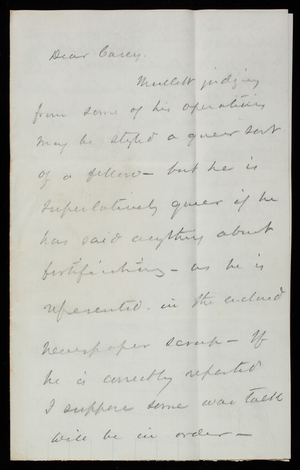 Dear Casey.
Mullett judging
from some of his operations
may be styled a queer sort
of a fellow - but he is
superlatively queer if he
has said anything about
fortifications - as he is
represented in the enclosed
newspaper scrap - If
he is correctly reported
I suppose some war talk
will be in order -